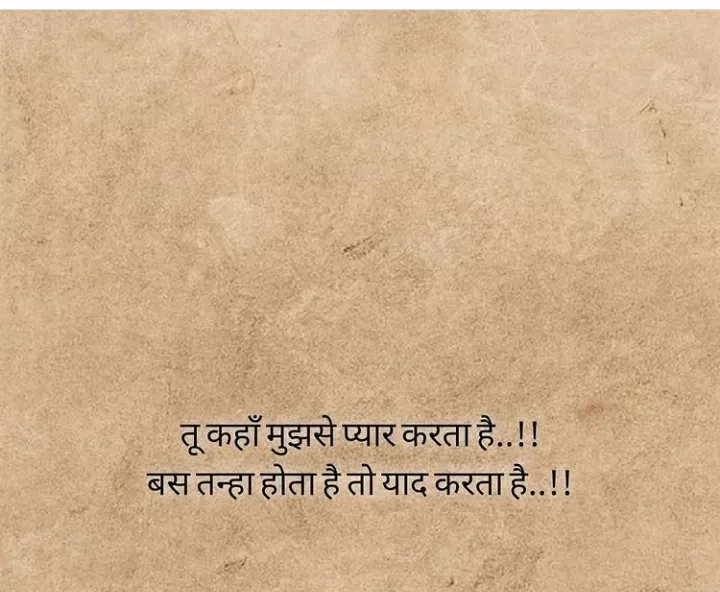 तू कहाँ मुझसे प्यार करता है..!!
बस तन्हा होता है तो याद करता है..!!